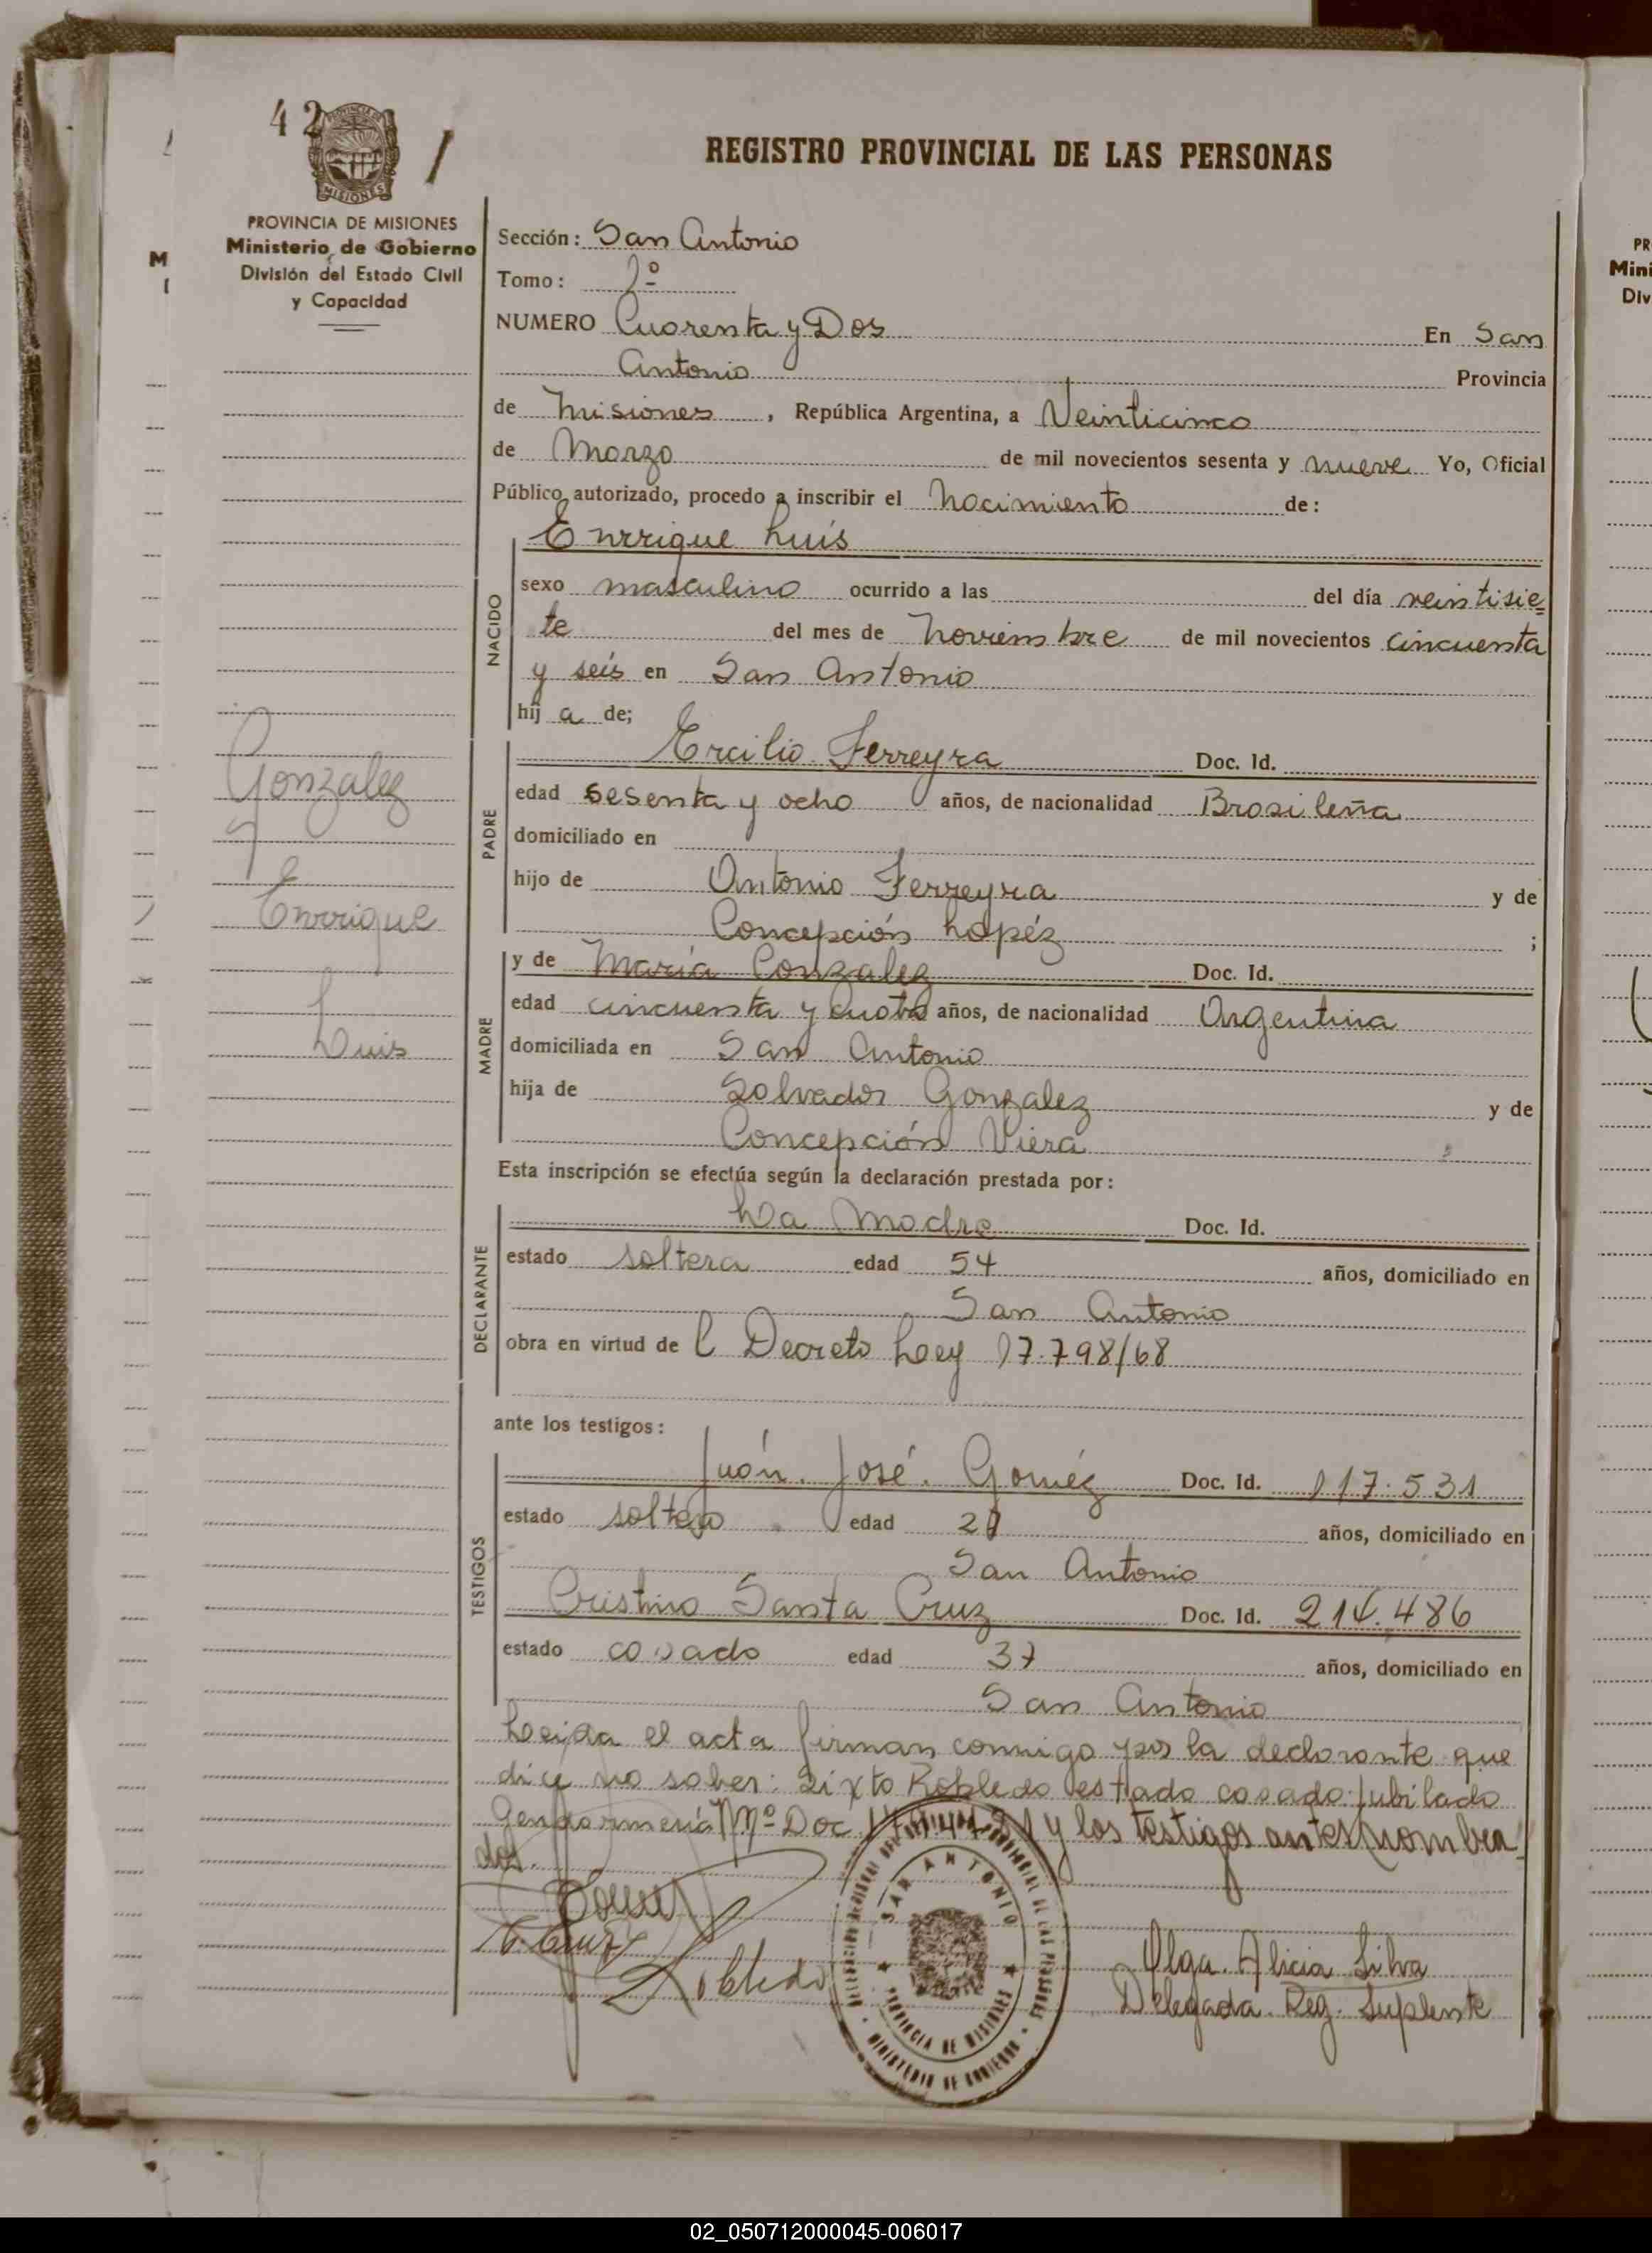 42
PROVINCIA DE MISIONES
Ministerio de Gobierno
División del Estado Civil
y Capacidad
REGISTRO PROVINCIAL DE LAS PERSONAS
Sección: San Antonio
Tomo: 2º
NUMERO Cuarenta y Dos En San
Antonio Provincia
de Misiones, República Argentina, a Veinticinco
de Marzo de mil novecientos sesenta y nueve Yo, Oficial
Público autorizado, procedo a inscribir el Nacimiento de:
NACIDO
Enrrique Luís
sexo masculino ocurrido a las del día veintisie=
te del mes de Noviembre de mil novecientos cincuenta
y seís en San Antonio
hij a de;
Gonzalez
Enrrique
Luis
PADRE
Ercilio Ferreyra Doc. Id.
edad sesenta y ocho años, de nacionalidad Brasileña
domiciliado en
hijo de Antonio Ferreyra y de
Concepción Lopéz ;
MADRE
y de María Gonzalez Doc. Id.
edad cincuenta y cuatro años, de nacionalidad Argentina
domiciliada en San Antonio
hija de Salvador Gonzalez y de
Concepción Viera
Esta inscripción se efectúa según la declaración prestada por:
DECLARANTE
La Madre Doc. Id.
estado soltera edad 54 años, domiciliado en
San Antonio
obra en virtud de l Decreto Ley 17.798/68
ante los testigos:
TESTIGOS
Juán José Goméz Doc. Id. 117.531
estado soltero edad años, domiciliado en
San Antonio
Cristino Santa Cruz Doc. Id. 214.486
estado casado edad 37 años, domiciliado en
San Antonio
Leida el acta firman conmigo por la declarante que
dice no saber: Sixto Robledo estado casado jubilado
Gendarmería Nº Doc y los testigos antes nombra=
dos.
Robledo
SAN ANTONIO
PROVINCIA DE MISIONES
MINISTERIO DE GOBIERNO
Olga Alicia Silva
Delegada Reg. Suplente
M
PR
Mini
Div
02_050712000045-006017